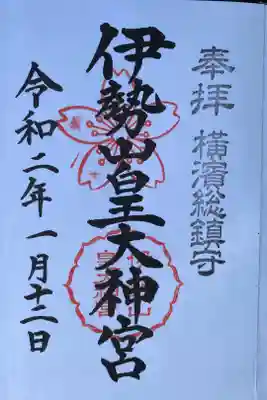 奉拝 横濱総鎮守
伊勢山皇大神宮
令和二年一月十二日